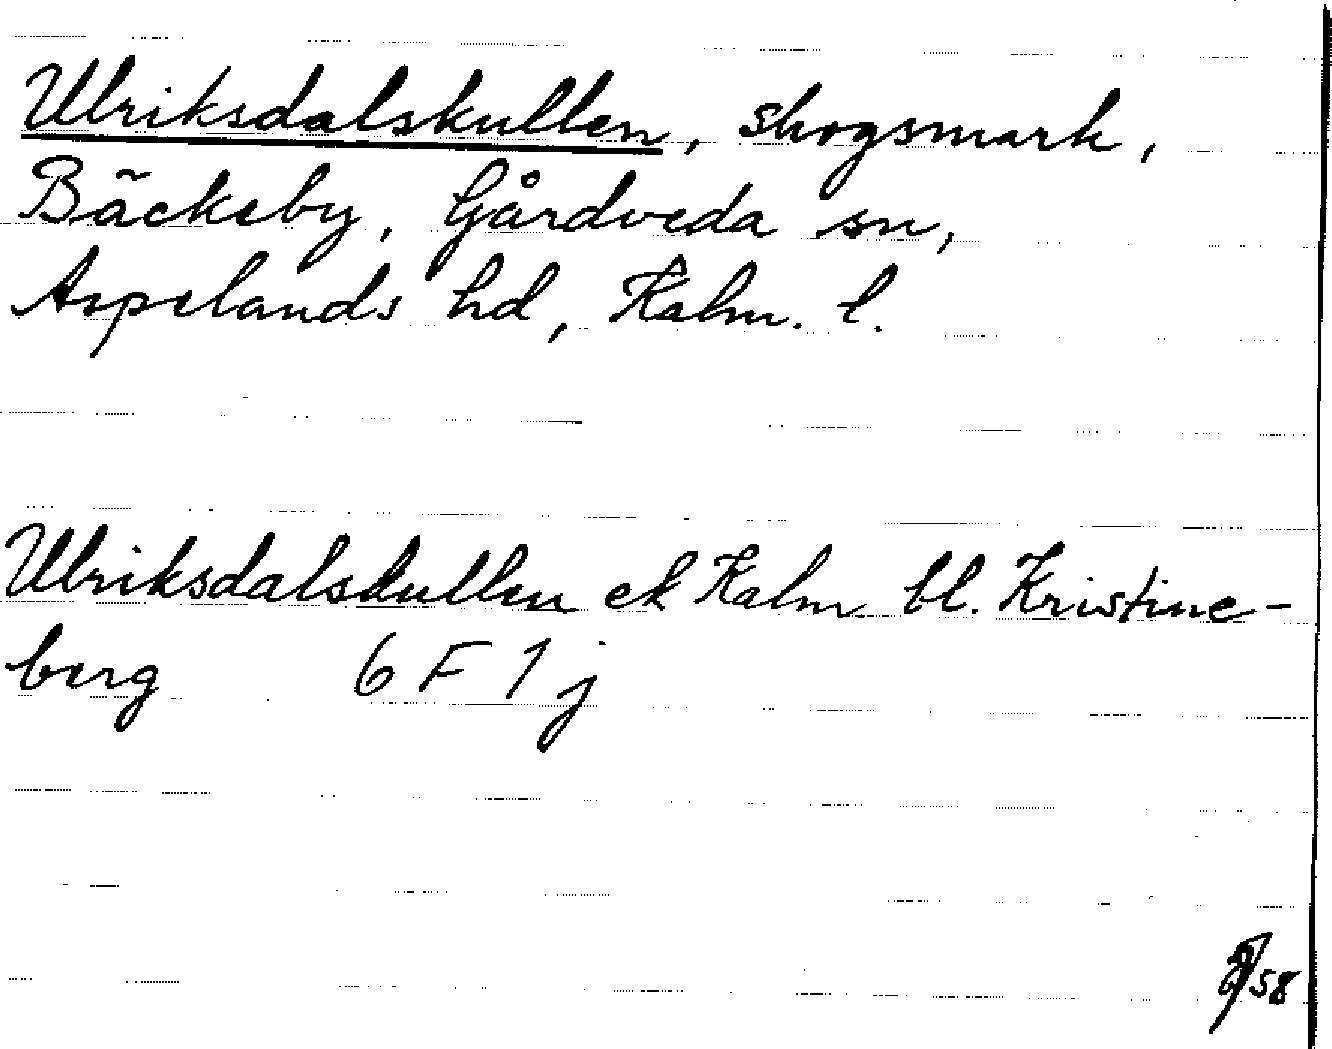 Ulriksdalskullen, skogsmark,
Bäckeby, Gårdveda sn,
Aspelands hd, Kalm. l.
Ulriksdalskullen ek Kalm bl. Kristine-
berg 6 F 1 j
58